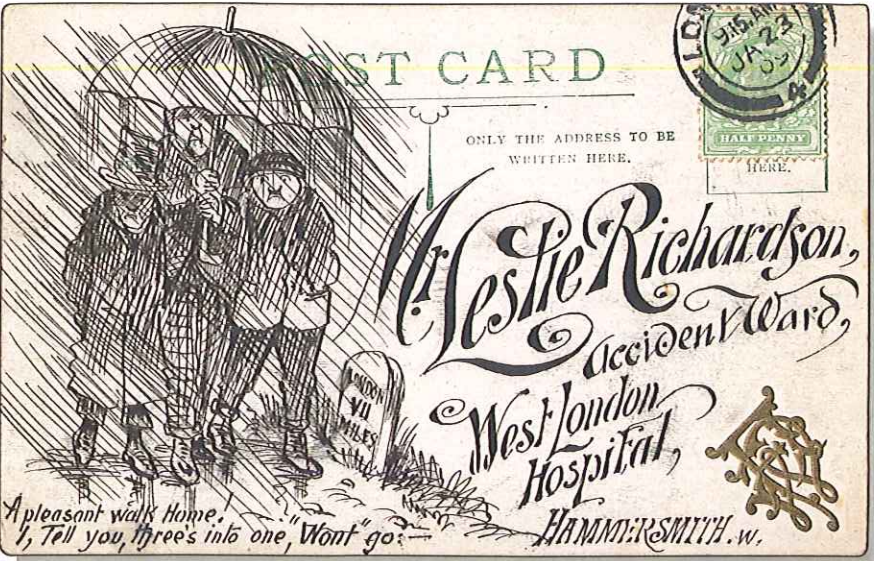 POST CARD
ONLY THE ADDRESS TO BE
WRITTEN HERE.
LON
9.15 AM
JA 23
09
4
HALF PENNY
HERE.
Mr. Leslie Richardson,
Accident Ward,
West London
Hospital,
HAMMERSMITH. W.
LONDON
VII
MILES
A pleasant walk Home!
I, Tell you, three's into one, "Wont" go:—